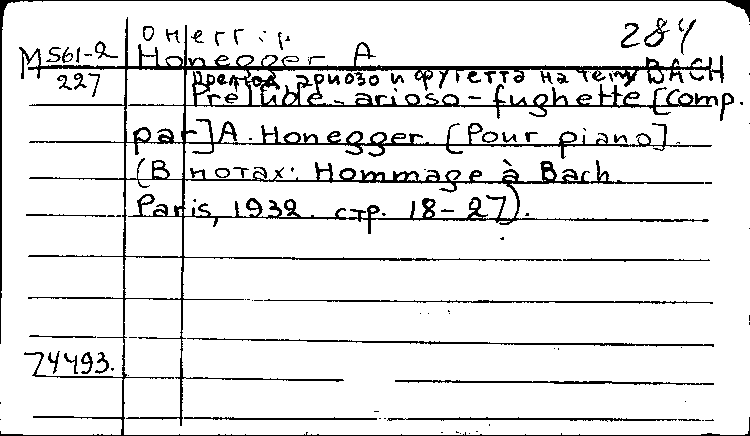 Онеггер 284
М 561-2 Honegger A
227 Прелюд, ариозо и фугетта на тему BACH
Prélude-arioso-fughette [Comp.
par] A. Honegger. [Pour piano].
(В нотах: Hommage à Bach.
Paris, 1932. стр. 18-27).
74493.